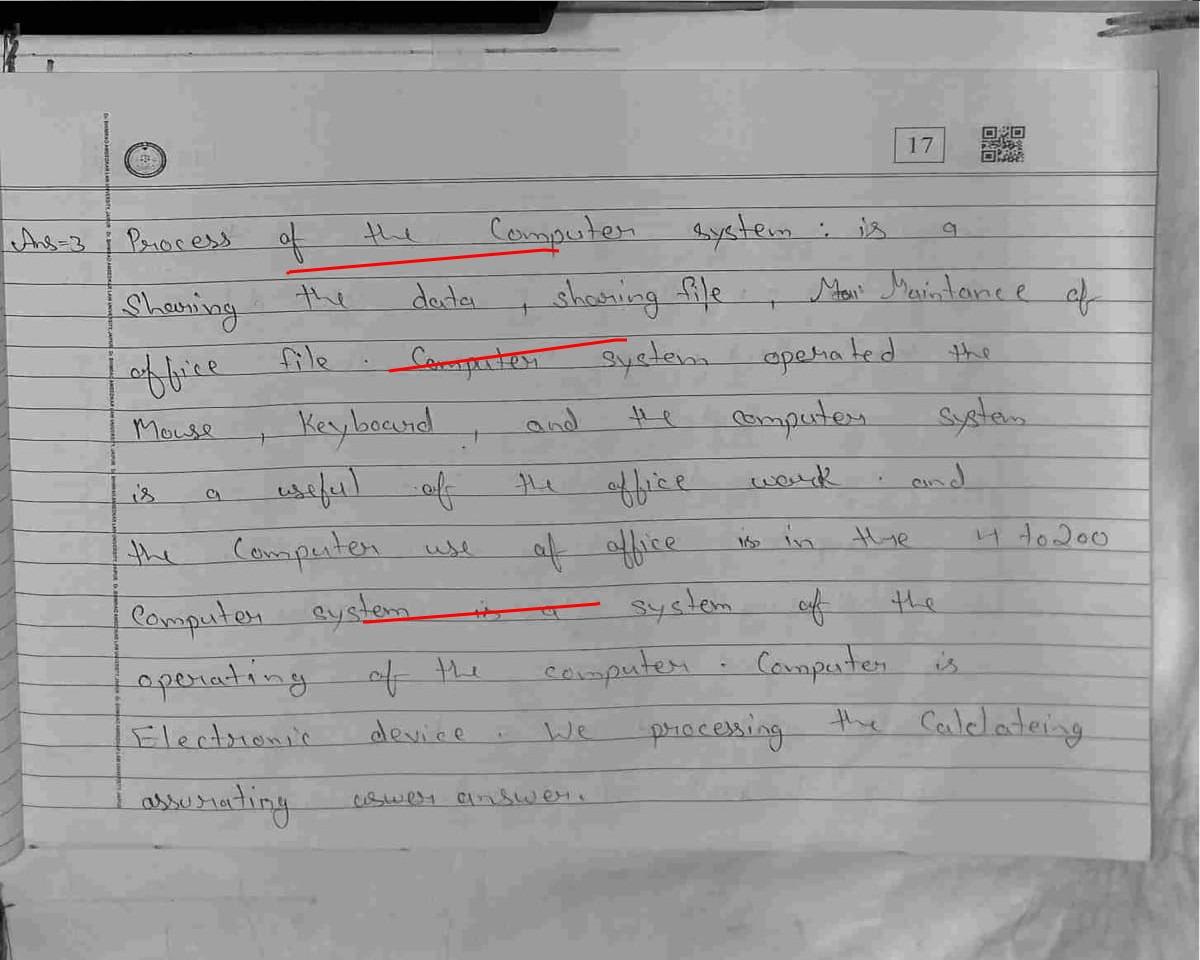 17
Ans=3 Process of the Computer system : is a
Sharing the data , sharing file , Maintance of
office file . Computer system operated the
Mouse , Keyboard , and the computer system
is a useful of the office work . and
the Computer use of office is in the 4 to 200
Computer system is a system of the
operating of the computer . Computer is
Electronic device . We processing the Calclateing
assurating aswer answer .